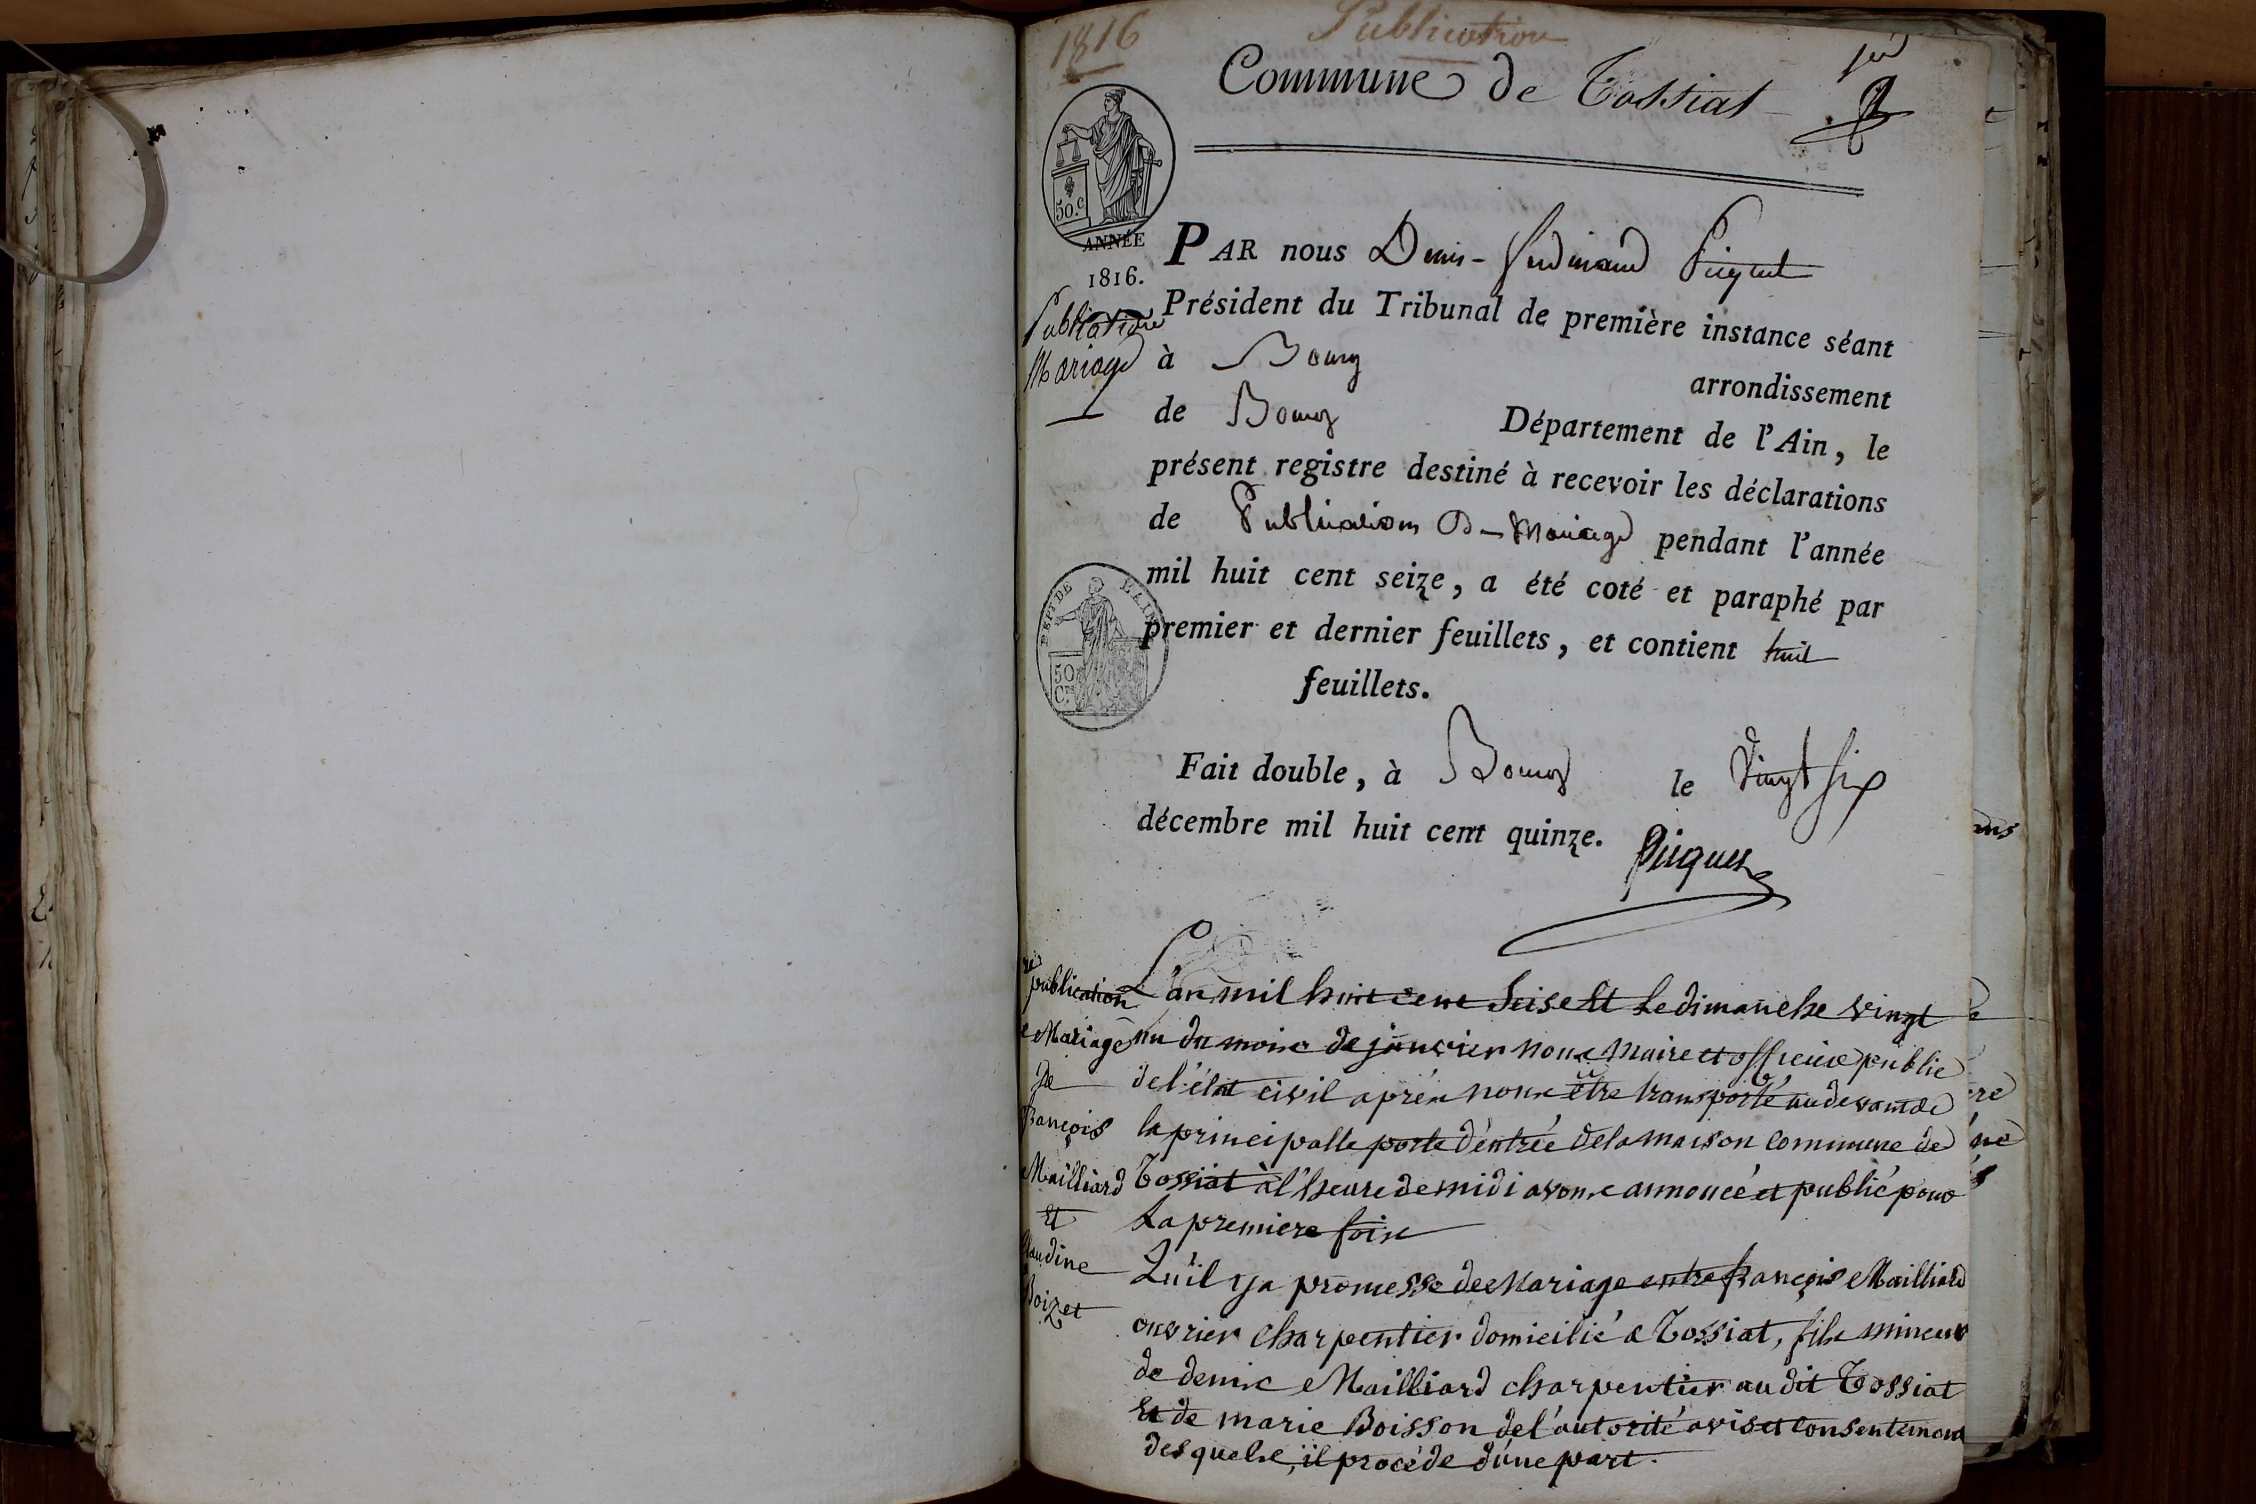 1816
Publication
Commune de Tossiat
50.c
ANNÉE
1816.
Publication
Mariage
PAR nous Denis-ferdinand Picquet
Président du Tribunal de première instance séant
à Bourg arrondissement
de Bourg Département de l'Ain, le
présent registre destiné à recevoir les déclarations
de Publications De Mariage pendant l'année
mil huit cent seize, a été coté et paraphé par
premier et dernier feuillets, et contient huit
feuillets.
DEPT DE L'AIN
50
Ces
Fait double, à Bourg le vingt six
décembre mil huit cent quinze.
Picquet
publication
Mariage
De
François
Mailliard
Et
Claudine
Boizet
L'an mil huit cent seise Et Le dimanche vingt
un du mois de janvier nous Maire et officier public
de l'état civil aprés nous être transporté au devant de
la principalle porte d'entrée de la maison commune de
Tossiat à l'heure de midi avons annoncé et publié pour
La premiere fois
Qu'il ya promesse de Mariage entre françois Mailliard
ouvrier Charpentier domicilié a Tossiat, fils mineur
de denis Mailliard charpentier au dit Tossiat
Et de marie Boisson de l'autorité avis et consentement
desquels, il procéde d'une part.